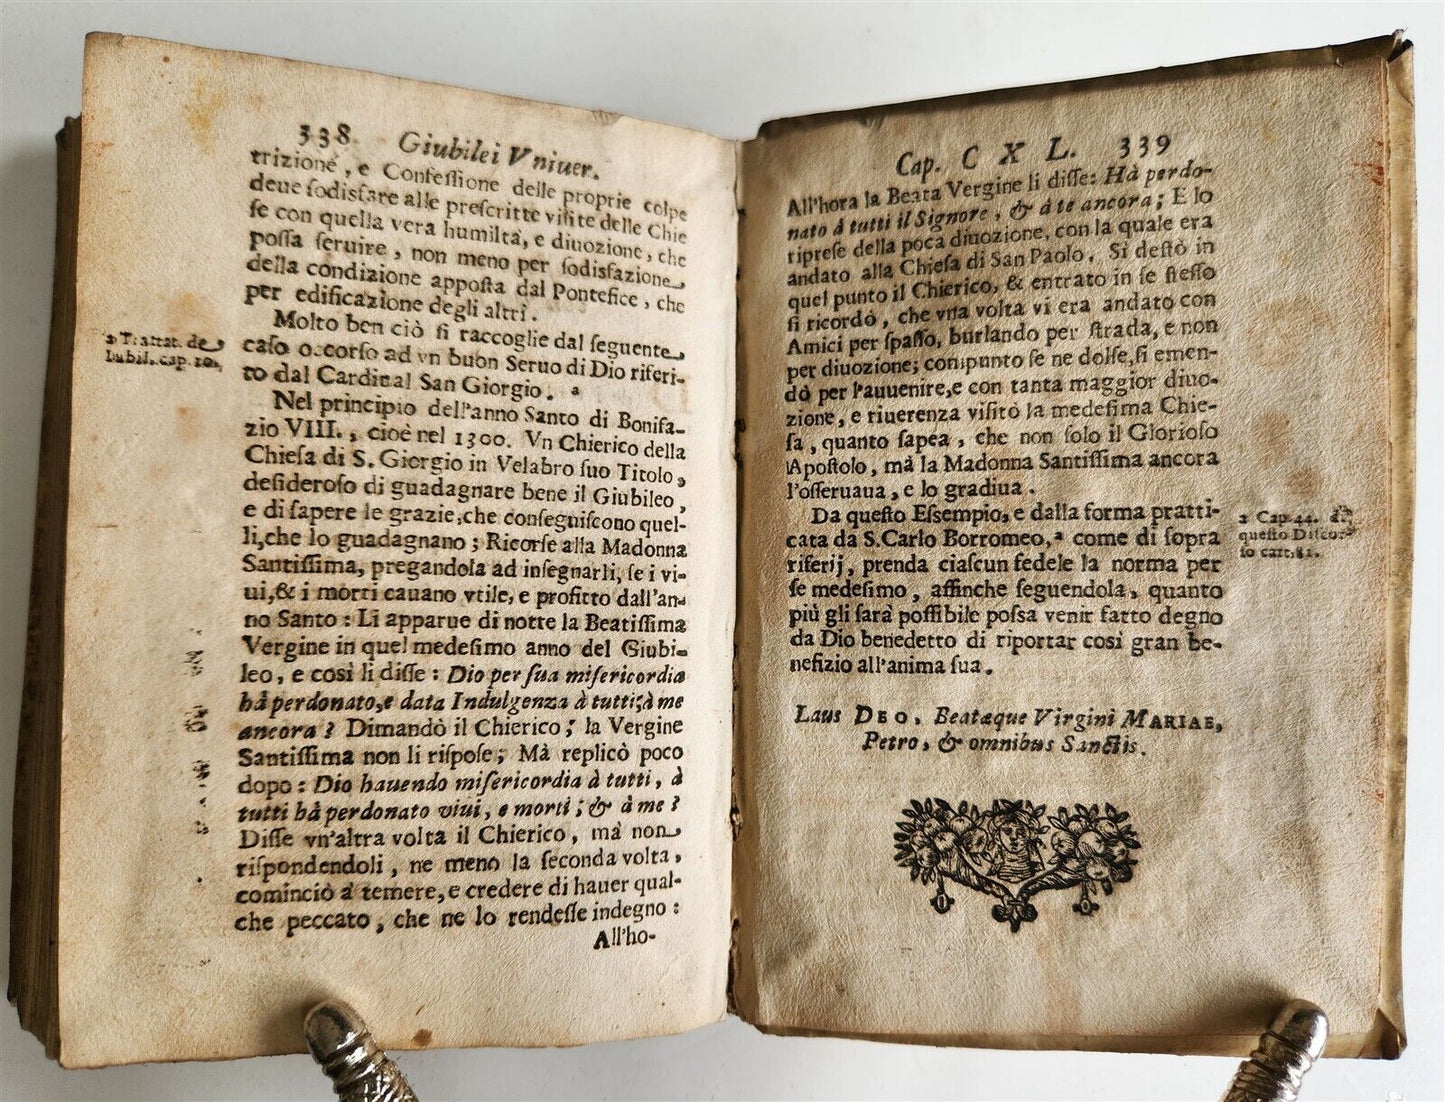 338 Giubilei Vniuer.
trizione, e Confeſſione delle proprie colpe
deue ſodisfare alle preſcritte viſite delle Chie
ſe con quella vera humiltà, e diuozione, che
poſſa ſeruire, non meno per ſodisfazione
della condizione appoſta dal Pontefice, che
per edificazione degli altri.
Molto ben ciò ſi raccoglie dal ſeguente
caſo occorſo ad vn buon Seruo di Dio riferi-
to dal Cardinal San Giorgio. a
a Trattat. de
Iubil. cap. 10.
Nel principio dell'anno Santo di Bonifa-
zio VIII., cioè nel 1300. Vn Chierico della
Chieſa di S. Giorgio in Velabro ſuo Titolo,
deſideroſo di guadagnare bene il Giubileo,
e di ſapere le grazie, che conſeguiſcono quel-
li, che lo guadagnano; Ricorſe alla Madonna
Santiſſima, pregandola ad inſegnarli, ſe i vi-
ui, & i morti cauano vtile, e profitto dall'an-
no Santo: Li apparue di notte la Beatiſſima
Vergine in quel medeſimo anno del Giubi-
leo, e così li diſſe: Dio per ſua miſericordia
hà perdonato, e data Indulgenza à tutti; à me
ancora? Dimandò il Chierico; la Vergine
Santiſſima non li riſpoſe; Mà replicò poco
dopo: Dio hauendo miſericordia à tutti, à
tutti hà perdonato viui, e morti; & à me?
Diſſe vn'altra volta il Chierico, mà non
riſpondendoli, ne meno la ſeconda volta,
cominciò à temere, e credere di hauer qual-
che peccato, che ne lo rendeſſe indegno:
All'ho-
Cap. CXL. 339
All'hora la Beata Vergine li diſſe: Hà perdo-
nato à tutti il Signore, & à te ancora; E lo
ripreſe della poca diuozione, con la quale era
andato alla Chieſa di San Paolo. Si deſtò in
quel punto il Chierico, & entrato in ſe ſteſſo
ſi ricordò, che vna volta vi era andato con
Amici per ſpaſſo, burlando per ſtrada, e non
per diuozione; compunto ſe ne dolſe, ſi emen-
dò per l'auuenire, e con tanta maggior diuo-
zione, e riuerenza viſitò la medeſima Chie-
ſa, quanto ſapea, che non ſolo il Glorioſo
Apoſtolo, mà la Madonna Santiſſima ancora
l'oſſeruaua, e lo gradiua.
Da queſto Eſſempio, e dalla forma pratti-
cata da S. Carlo Borromeo, a come di ſopra
riferij, prenda ciaſcun fedele la norma per
ſe medeſimo, affinche ſeguendola, quanto
più gli ſarà poſſibile poſsa venir fatto degno
da Dio benedetto di riportar così gran be-
nefizio all'anima ſua.
a Cap. 44. di
queſto Diſcor-
ſo cart. 81.
Laus DEO, Beatæque Virgini MARIAE,
Petro, & omnibus Sanctis.